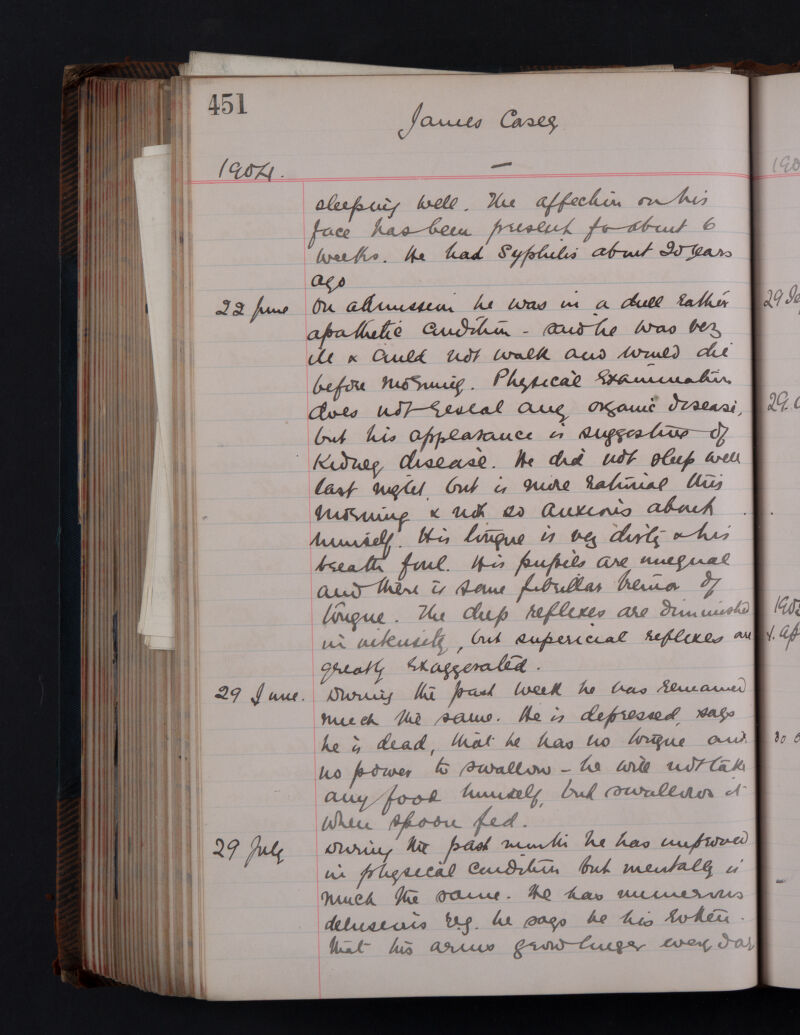 451
James Casey
1904.
sleeping well. The affection on his
face has been present for about 6
weeks. He had Syphilis about 20 years
ago
22 June On admission he was in a dull rather
apathetic condition - said he was very
ill & could not walk and would die
before morning. Physical Examination
does not reveal any organic disease,
but his appearance is suggestive of
Kidney disease. He did not sleep well
last night, but is more rational this
morning & not so anxious about
himself. His tongue is very dirty & his
breath foul. His pupils are unequal
and there is some fibrillar tremor of
tongue. The deep reflexes are diminished
in intensity, but supericial reflexes are
greatly exaggerated.
29 June. During the past week he has remained
much the same. He is depressed, says
he is dead, that he has no tongue and
no power to swallow - he will not take
any food himself, but swallows it
when spoon fed.
29 July During the past month he has improved
in physical condition but mentally is
much the same. He has numerous
delusions e.g. he says he his rotten -
that his arms grow longer every day
190
29
29.
190
4. Ap
30